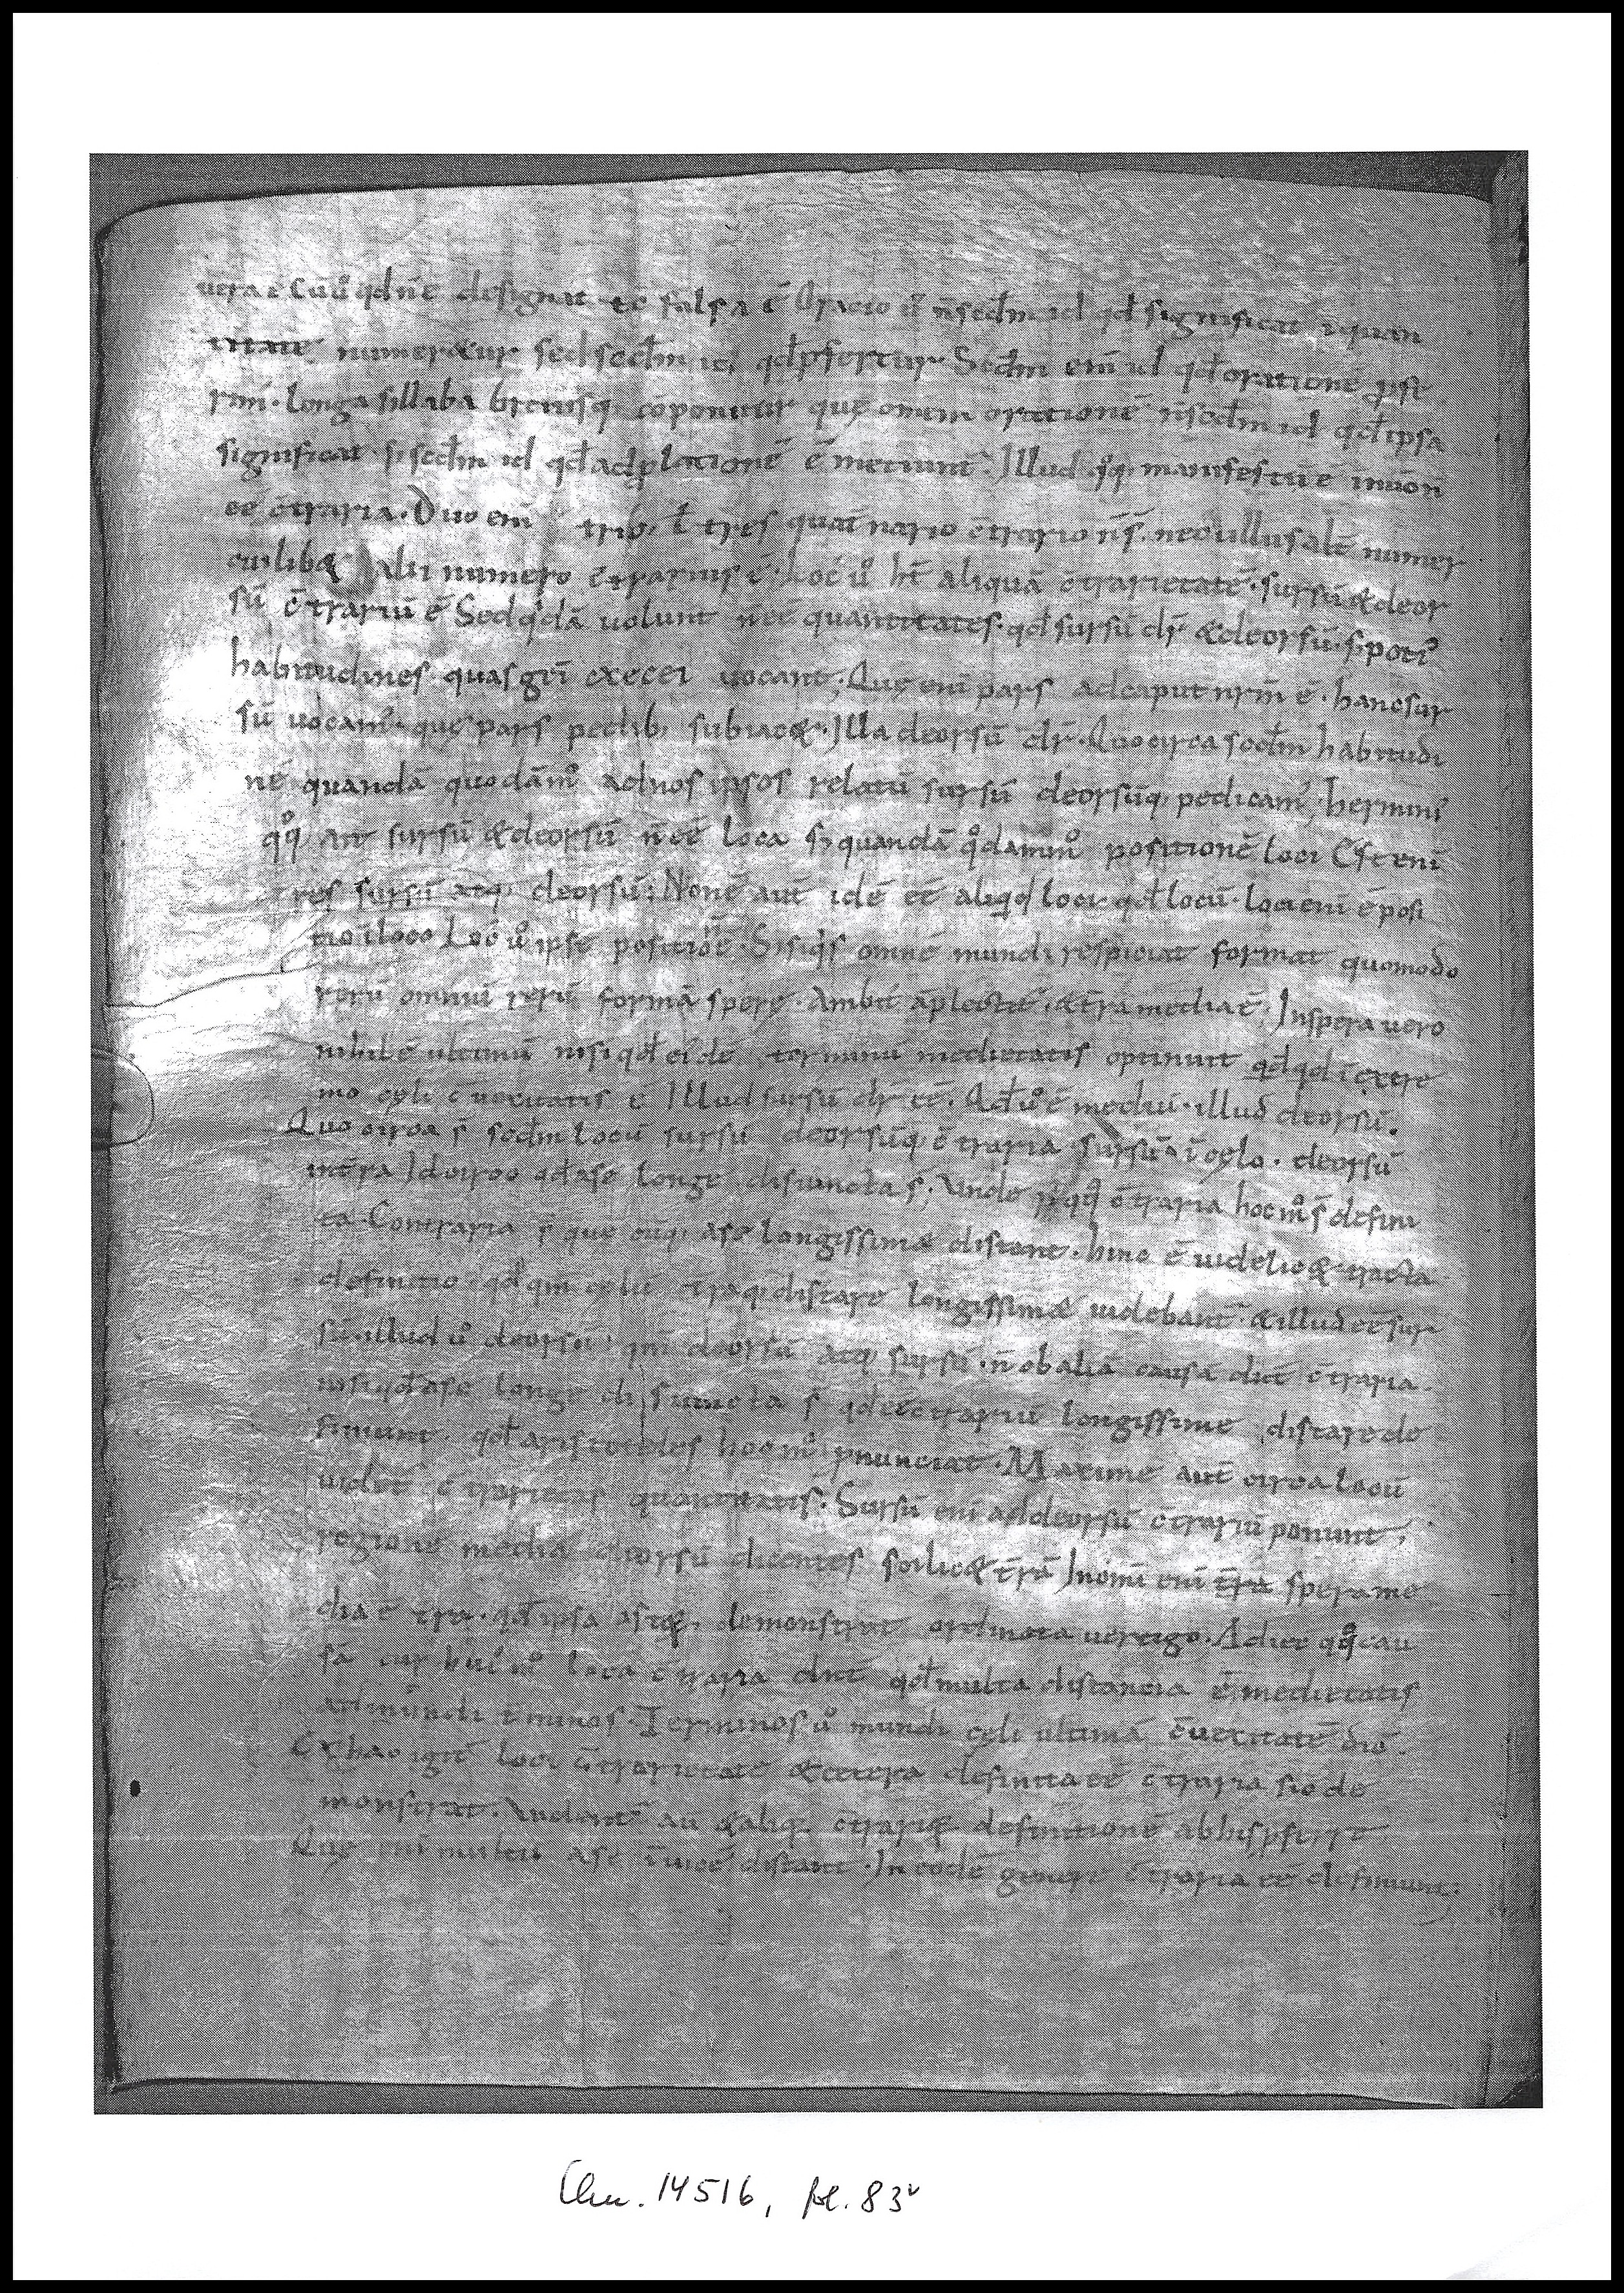 uera ē Cū ůo qd n̄ ē designat tc̄ falsa ē Oracio ē n̄ scdm id qđ significat ī quan
titate numeratur sed scdm id qđ ꝓfertur Scdm eni id qđ orationē
longa sillaba breuisq; cōponitur quę omnem orationē n̄ scdm id qđ ipsa
significat s; scdm id qđ ad ꝓlationē ē metiunt̄. Illud qͦq; manifestū ē
ēē c̄traria. Duo eni trib; ł tres quat̄nario c̄trario n̄ s̄. nec ullus alt̄ numer
cuilib& alii numero c̄trarius ē. Loc' ůo ht̄ aliquā c̄trarietatē. sursū & deor
sū c̄trariū ē Sed qdā uolunt n̄ ēē quantitates. qđ sursū dr̄ & deorsū. s; poti'
habitudines quas gr̄i execei uocant; Quę eni pars ad caput nr̄m ē. hanc sur
sū uocam'. quę pars pedib; subiac&. Illa deorsū dr̄. Quo circa scdm habitudi
nē quandā quodāmͦ ad nos ipsos relatū sursū deorsūq; p̄dicam'. hermini'
qͦq; ait sursū & deorsū n̄ ēē loca s; quandā qͦdammͦ positionē loci Est eni
res sursū atq; deorsū; Non ē aut̄ idē ēē aliqd loci qđ locū. Loci eni ē posi
tio ī loco Loc' ůo ipse positio n̄ ē. Si siqs omnē mundi respiciat format quomodo
rerū omniū rerū formā spere. Ambit āplectit̄. & t̄ra media ē; In spera uero
nihil ē ultimū nisi qđ eide terminū medietatis optinuit qđ qđ ī extre
mo cęli c̄uexitatis ē Illud sursū dr̄ ēē. Qđ ůo ē mediū. illud deorsū.
Quo circa s̄ scdm locū sursū deorsūq; c̄traria sursū ī cęlo. deorsū
in t̄ra Idcirco qđ a se longe disiuncta s̄. Unde qͦq; c̄traria hoc mͦ s̄ defini
ta. Contraria s̄ que cūq; a se longissime distant. hinc ē uidelic& tracta
definitio qđ qm̄ cęlū t̄raq; distare longissime uidebant̄. & illud ēē sur
sū. illud ůo deorsū qm̄ deorsū atq; sursū. n̄ ob aliā causā dict̄ c̄traria.
nisi qđ a se longe disiuncta s̄ qđ ēē c̄trariū longissime distare de
finiunt. qđ aristoteles hoc mͦ ꝓnunciat. Maxime aut̄ circa locū
uidet̄ c̄trarietas quantitatis. Sursū eni ad deorsū c̄trariū ponunt;
regionē mediā deorsū dicentes scilic& t̄rā In omni eni t̄ra spera me
dia ē t̄ra. qđ ipsa demonstrat ordinata uertigo. Adicit qͦq; cau
sā cur hui' mͦ loca c̄traria dict̄ qđ multa distancia ē medietatis
ad mundi t̄minos. Terminos ůo mundi cęli ultimā c̄uexitatē dic̄.
Ex hac igit̄ loci c̄trarietate & cetera definita ēē c̄traria sic de
monstrat. Uident̄ aū & aliq; definitionē ab his ꝓferre
Quę eni multū a se īuicē distant. In eodē genere c̄traria ēē definiunt;
Clm. 14516, fol. 83v